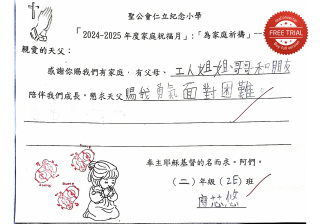 聖公會仁立紀念小學
「2024-2025 年度家庭祝福月」:「為家庭祈禱」
FREE TRIAL
親愛的天父:
感謝你賜我們有家庭,有父母、工人姐姐、哥哥和朋友
陪伴我們成長。懇求天父賜我勇氣面對困難。
奉主耶穌基督的名而求。阿們。
(二)年級(2E)班